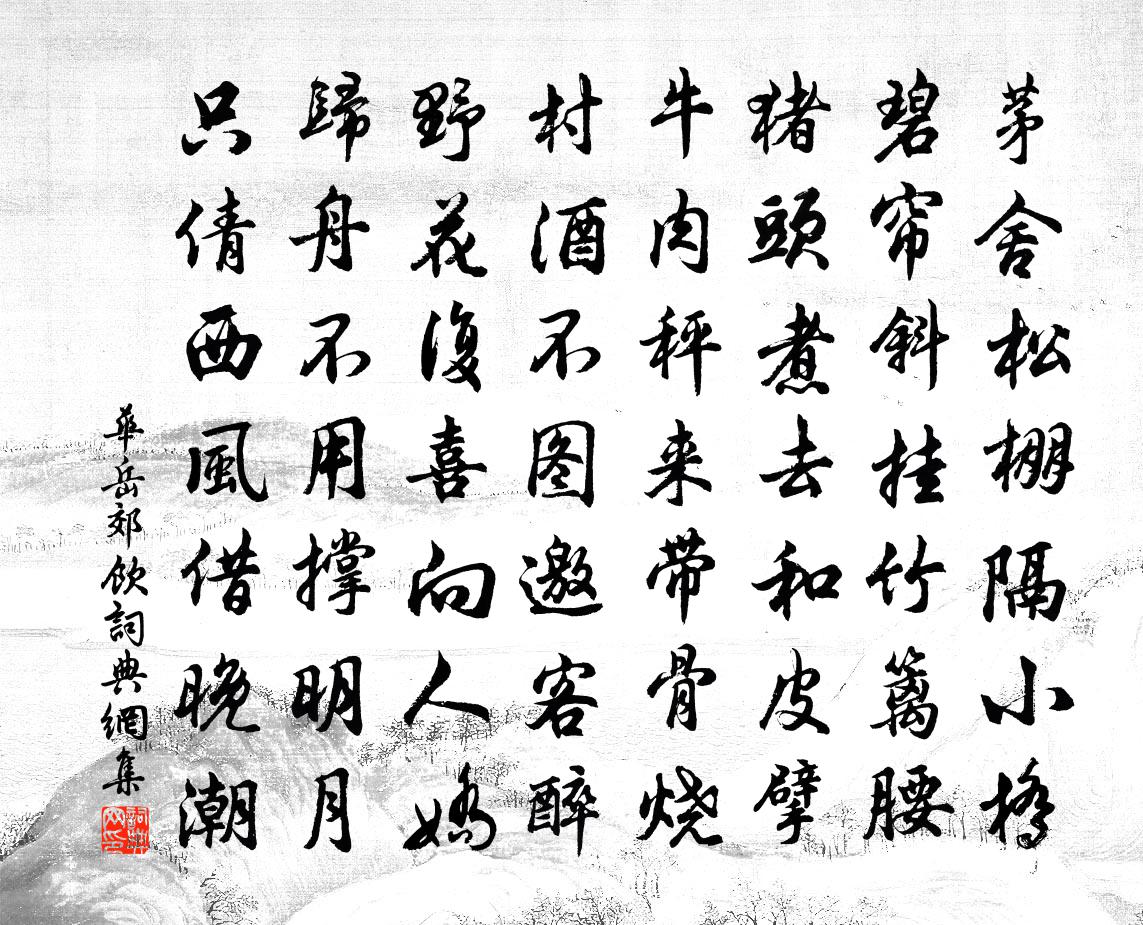 茅舍松棚隔小橋
碧帘斜挂竹篱腰
猪頭煮去和皮擘
牛肉秤来带骨烧
村酒不图邀客醉
野花復喜向人嬌
歸舟不用撑明月
只倩西風借晚潮
華岳郊飲詞典網集